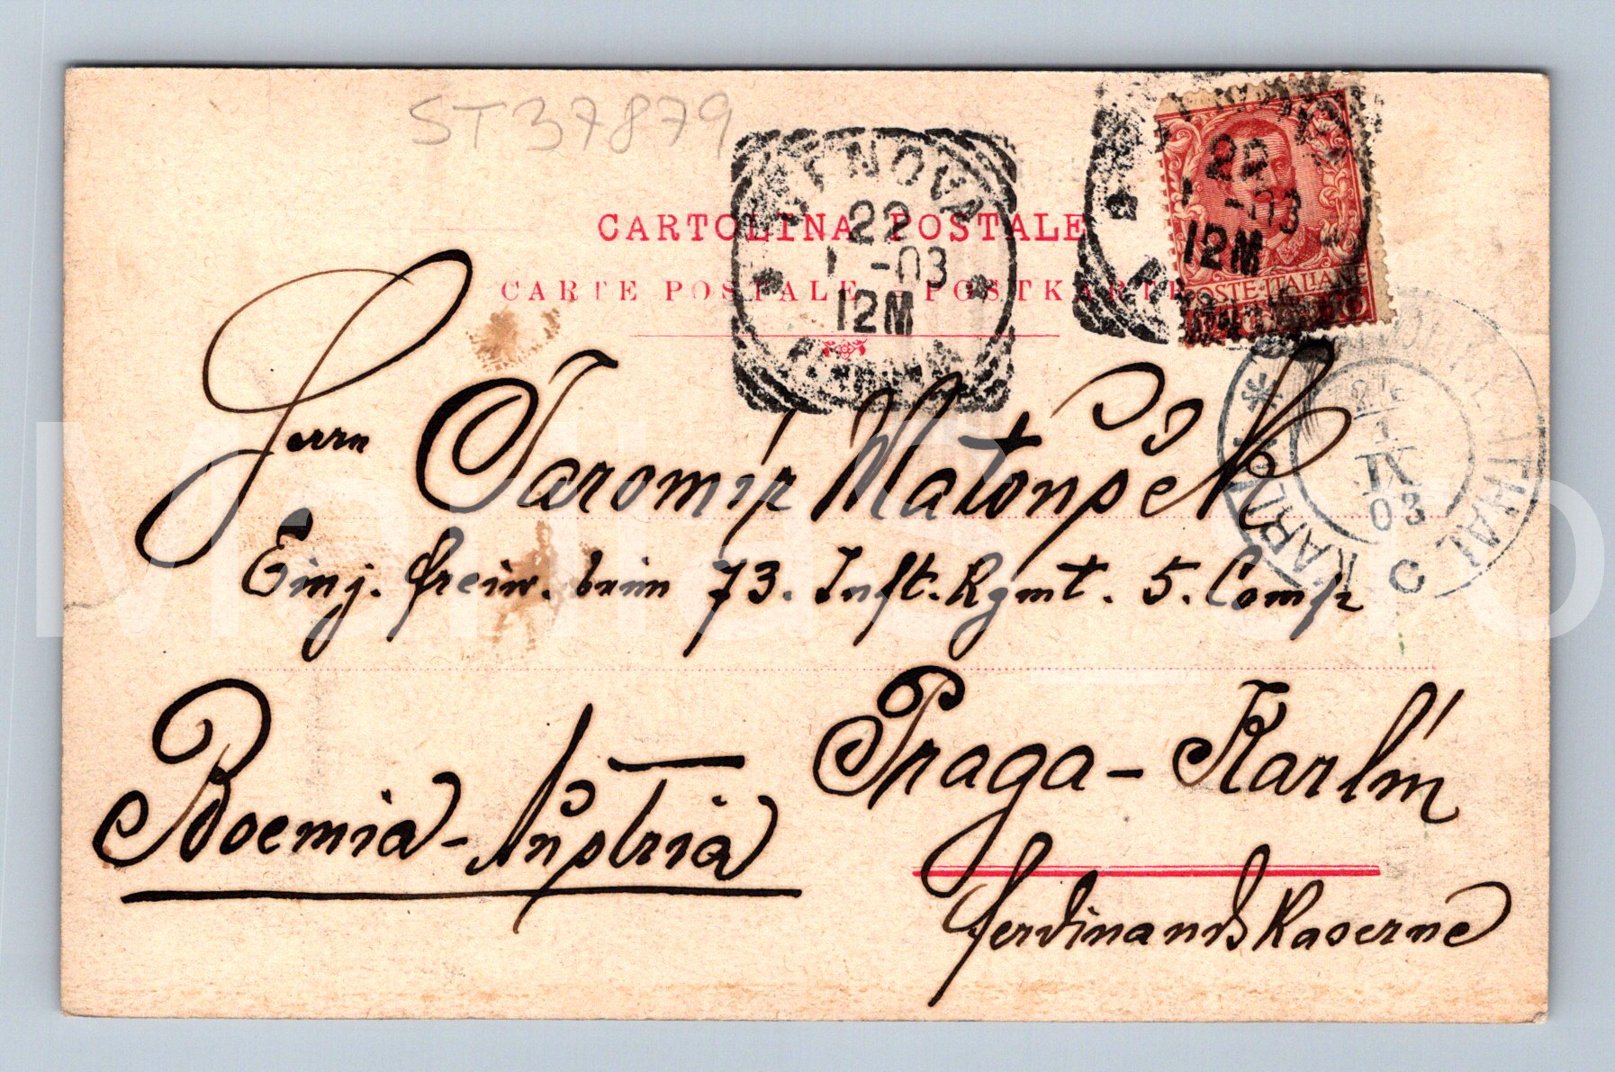 ST37879
GENOVA
22
1 -03
12M
22
-03
12M
POSTE·ITALIANE
CARTOLINA POSTALE
CARTE POSTALE - POSTKARTE
KARLÍN
IX
03
Herrn Jaromír Matoušek
Einj. freiw. beim 73. Inft. Rgmt. 5. Comp
Praga - Karlín
Boemia - Austria
Ferdinands Kaserne